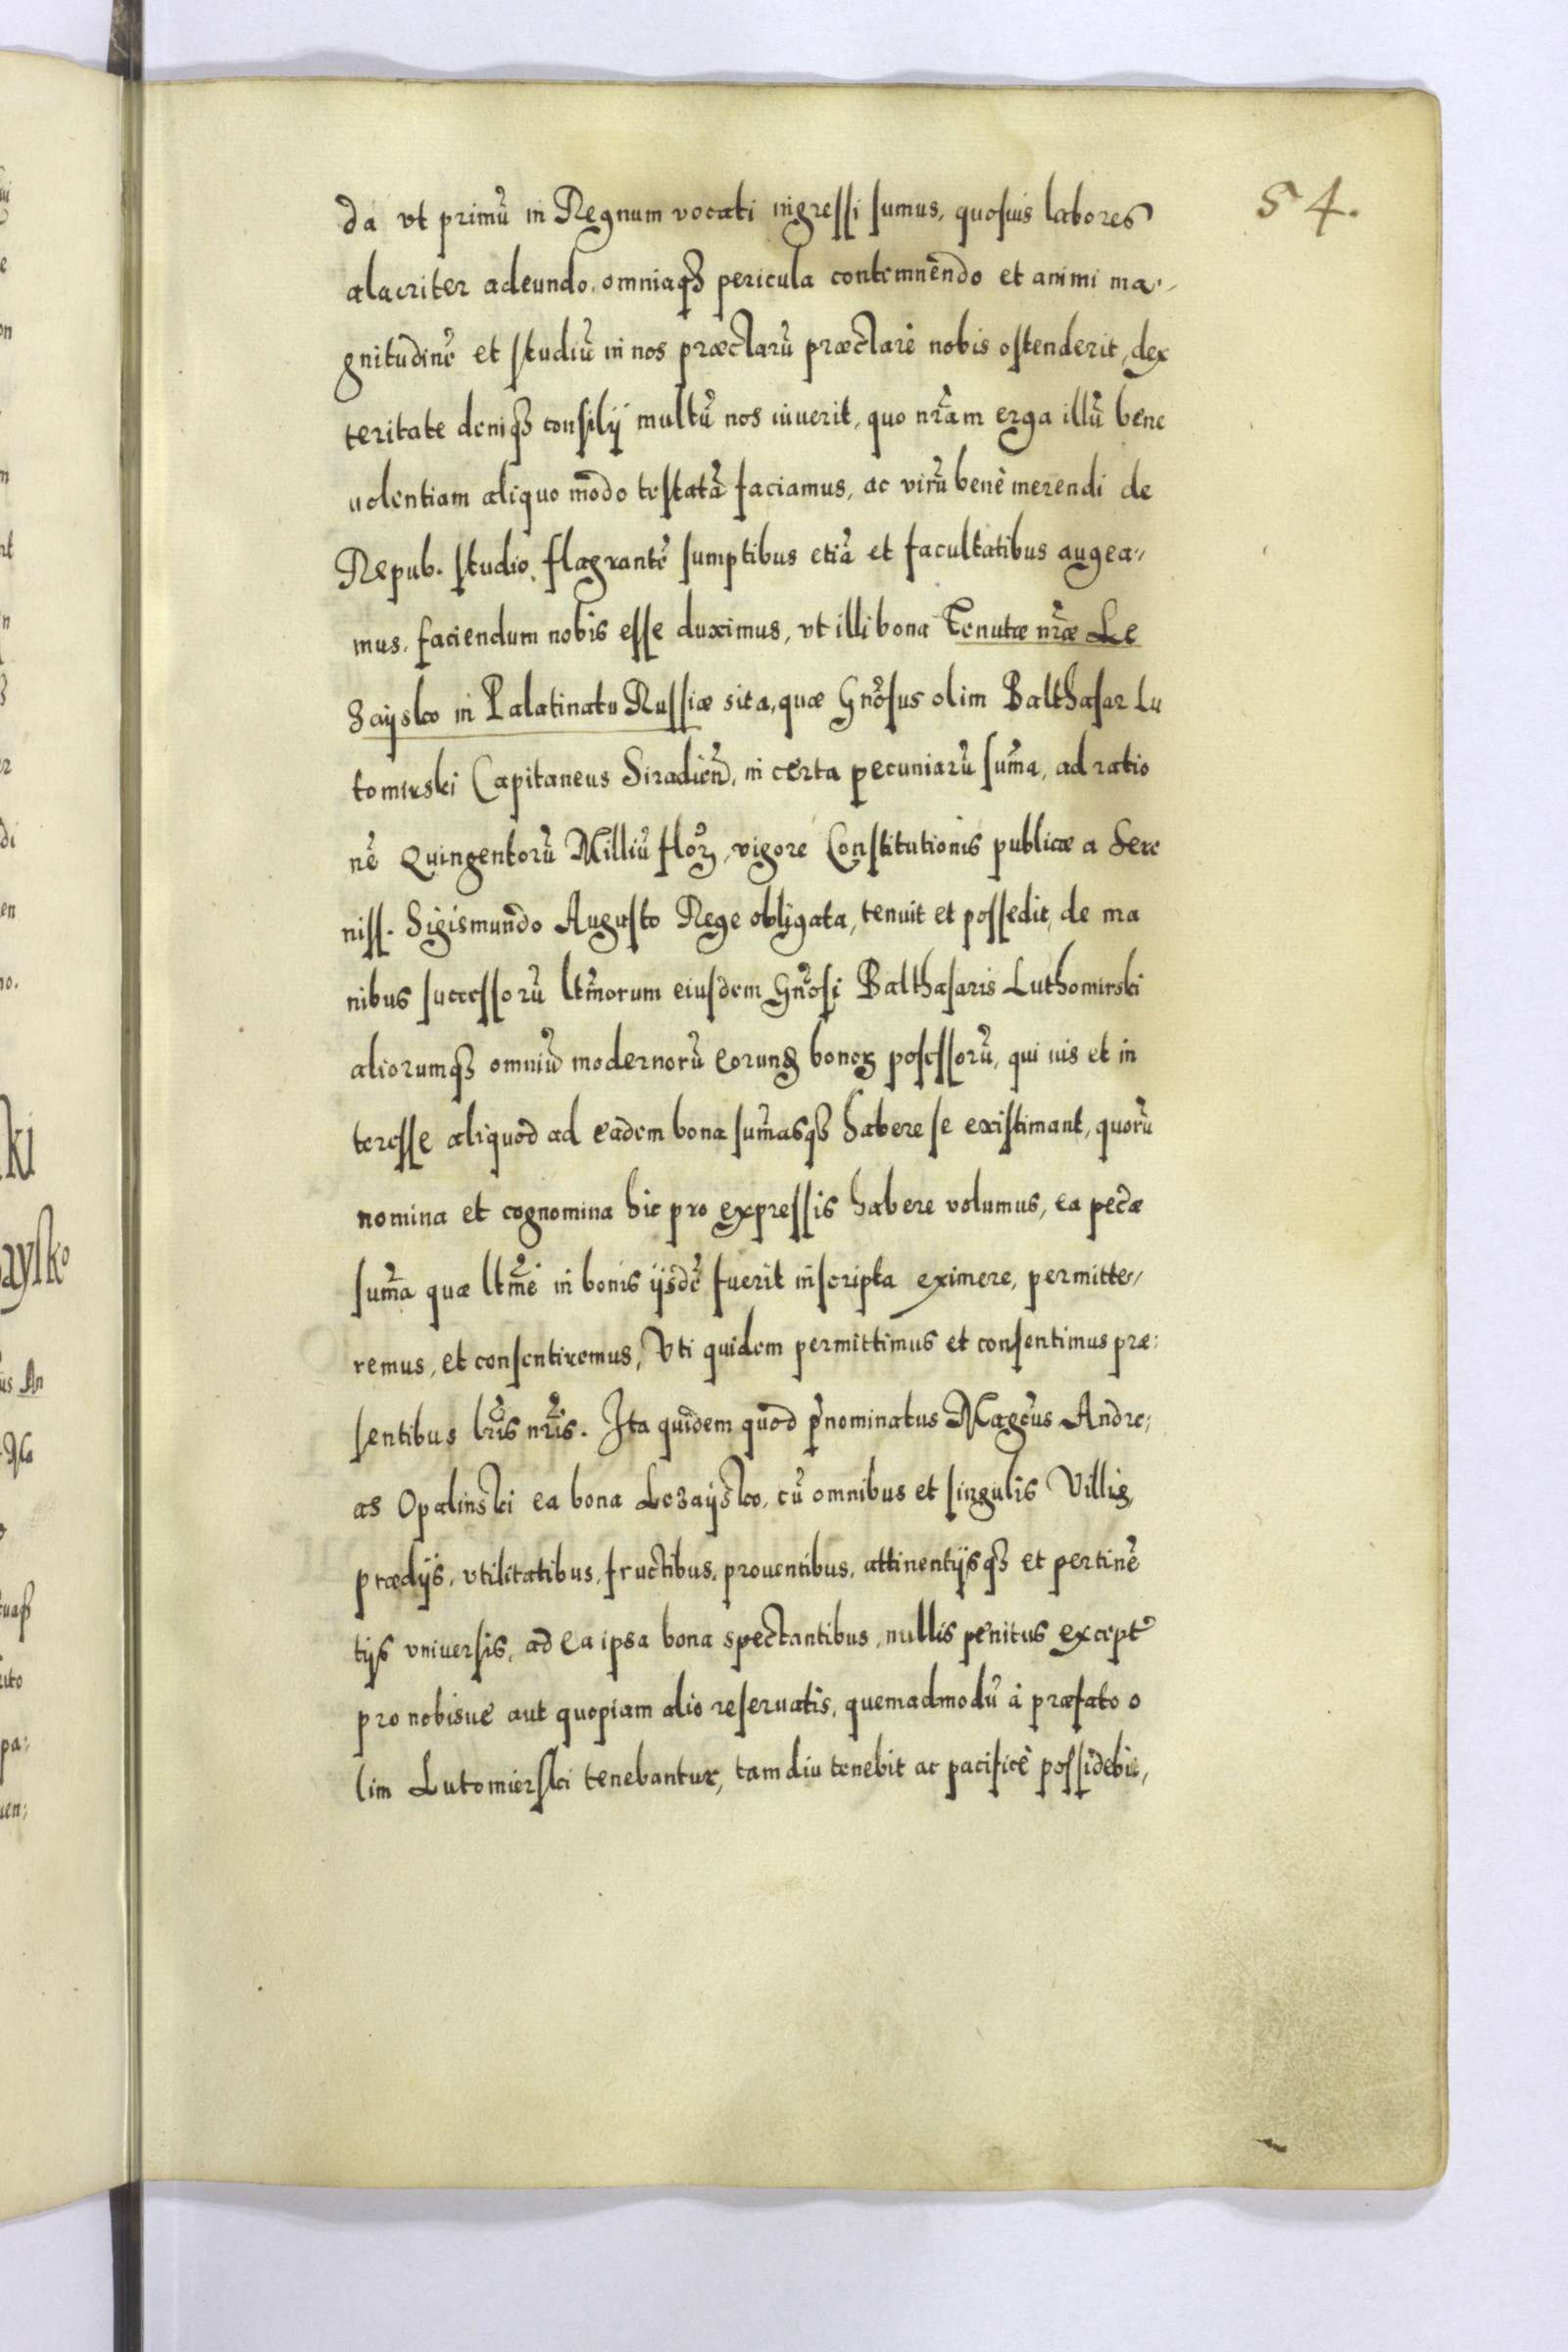 54.
da vt primũ in Regnum vocati ingressi sumus, quosuis labores
alacriter adeundo, omniaqȝ pericula contemnendo et animi ma-
gnitudinẽ et studiũ in nos præclarũ præclarè nobis ostenderit, dex
teritate deniqȝ consilij multũ nos iuuerit, quo nr̃am erga illũ bene
uolentiam aliquo modo testatã faciamus, ac virũ benè merendi de
Repub. studio flagrantẽ sumptibus etiã et facultatibus augea-
mus, faciendum nobis esse duximus, vt illi bona Tenutæ nr̃æ Le
zaysko in Palatinatu Russiæ sita, quæ Gnõsus olim Balthasar Lu
tomirski Capitaneus Siradieñ, in certa pecuniarũ sum̃a, ad ratio
nẽ Quingentorũ Milliũ floꝝ, vigore Constitutionis publicæ a Sere
niss. Sigismundo Augusto Rege obligata, tenuit et possedit, de ma
nibus successorũ ltm̃orum eiusdem Gnõsi Balthasaris Luthomirski
aliorumqȝ omniũ modernorũ eorundȝ bonoꝝ possessorũ, qui ius et in
teresse aliquod ad eadem bona sum̃asqȝ habere se existimant, quorũ
nomina et cognomina hic pro expressis habere volumus, ea pec̃æ
sum̃a quæ ltm̃è in bonis ijsdẽ fuerit inscripta eximere, permitte-
remus, et consentiremus, Vti quidem permittimus et consentimus præ:
sentibus lr̃is nr̃is. Ita quidem quod p̃nominatus Magc̃us Andre:
as Opalinski ea bona Lezaysko, cũ omnibus et singulis Villis,
prædijs, vtilitatibus, fructibus, prouentibus, attinentijsqȝ et pertinẽ
tijs vniuersis, ad ea ipsa bona spectantibus, nullis penitus except̃
pro nobisue aut quopiam alio reseruatis, quemadmodũ à præfato o
lim Lutomierski tenebantur, tam diu tenebit ac pacificè possidebit,